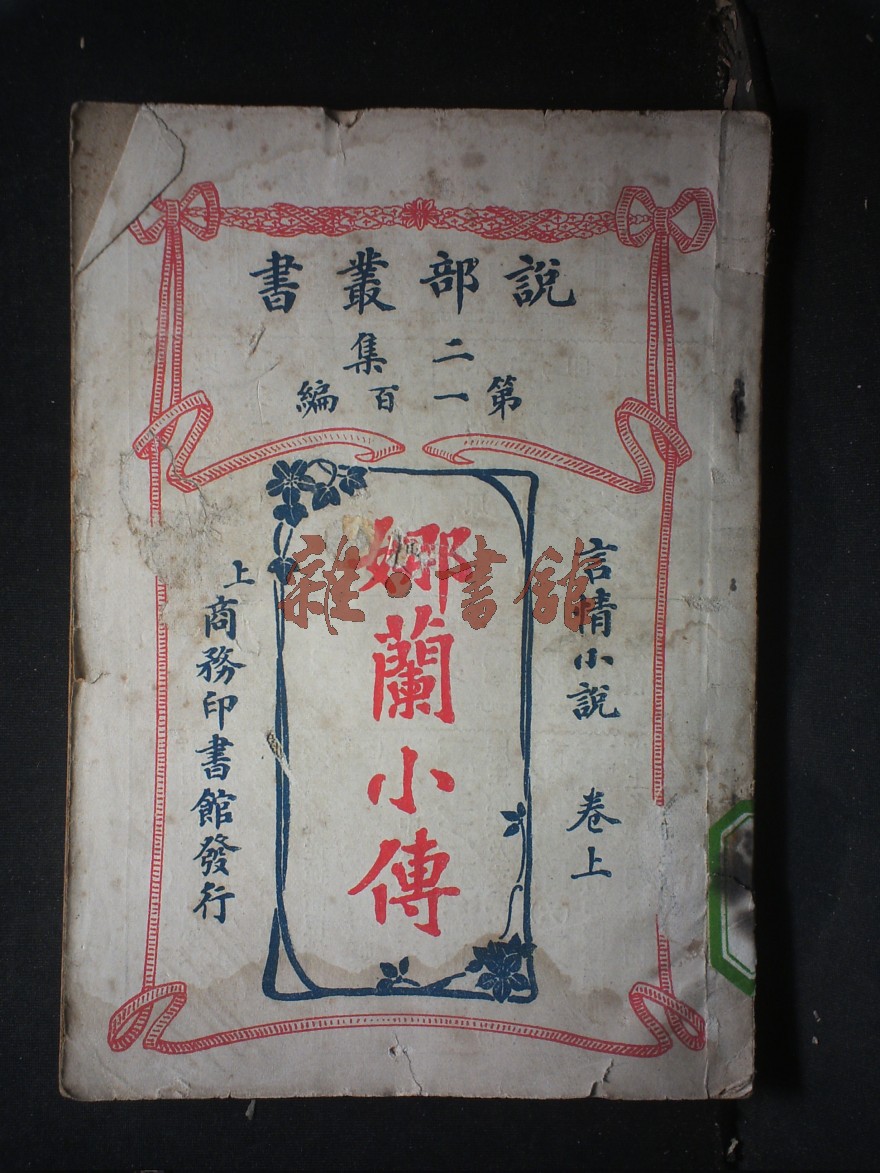 說部叢書
二集
第一百編
言情小說 卷上
娜蘭小傳
上 商務印書館發行
雜·書館